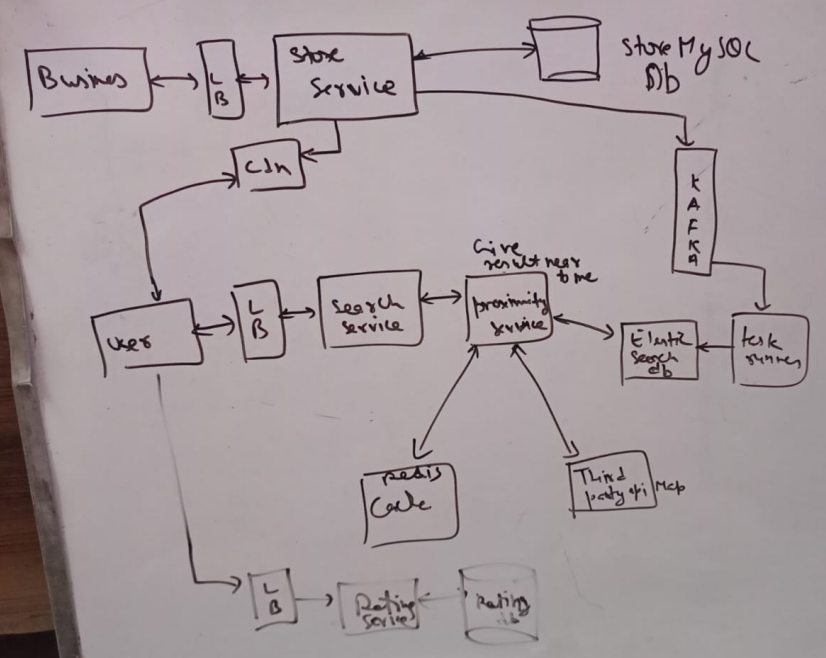 Busines
L
B
Store
Service
Store MySQL
Db
Cdn
K
A
F
K
A
Give
result near
to me
User
L
B
Search
service
proximity
service
Elastic
Search
db
task
runner
redis
Cache
Third
party api
Map
L
B
Rating
Service
Rating
db